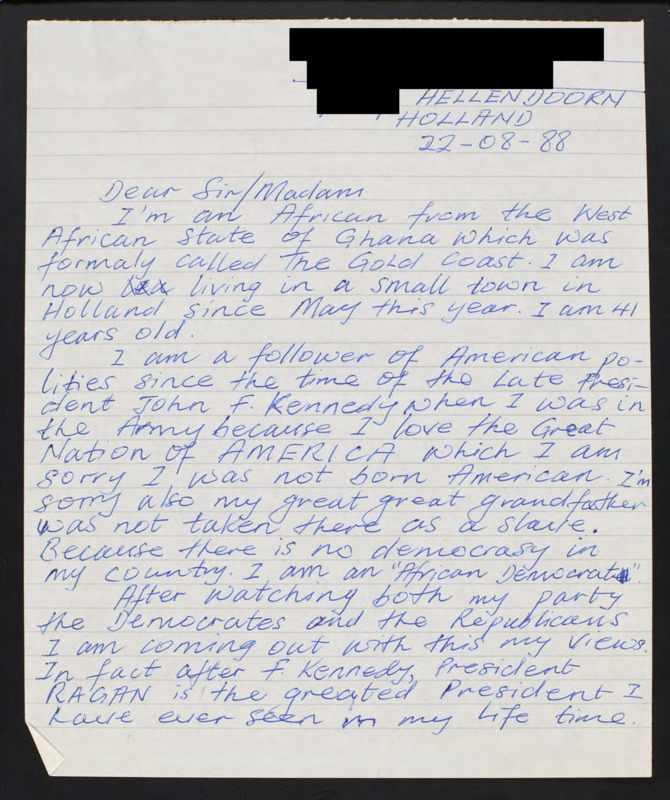 HELLENDOORN
HOLLAND
22-08-88
Dear Sir/Madam
I'm an African from the West
African State of Ghana which was
formaly called The Gold Coast. I am
now living in a small town in
Holland since May this year. I am 41
years old.
I am a follower of American po-
lities since the time of the Late Presi-
dent John F. Kennedy, when I was in
the Army because I love the Great
Nation of AMERICA which I am
sorry I was not born American. I'm
sorry also my great great grandfather
was not taken there as a slave.
Because there is no democrasy in
my country. I am an "African Democrat".
After watching both my party
the Democrates and the Republicans
I am coming out with this my views.
In fact after F. Kennedy, President
RAGAN is the greated President I
have ever seen in my life time.